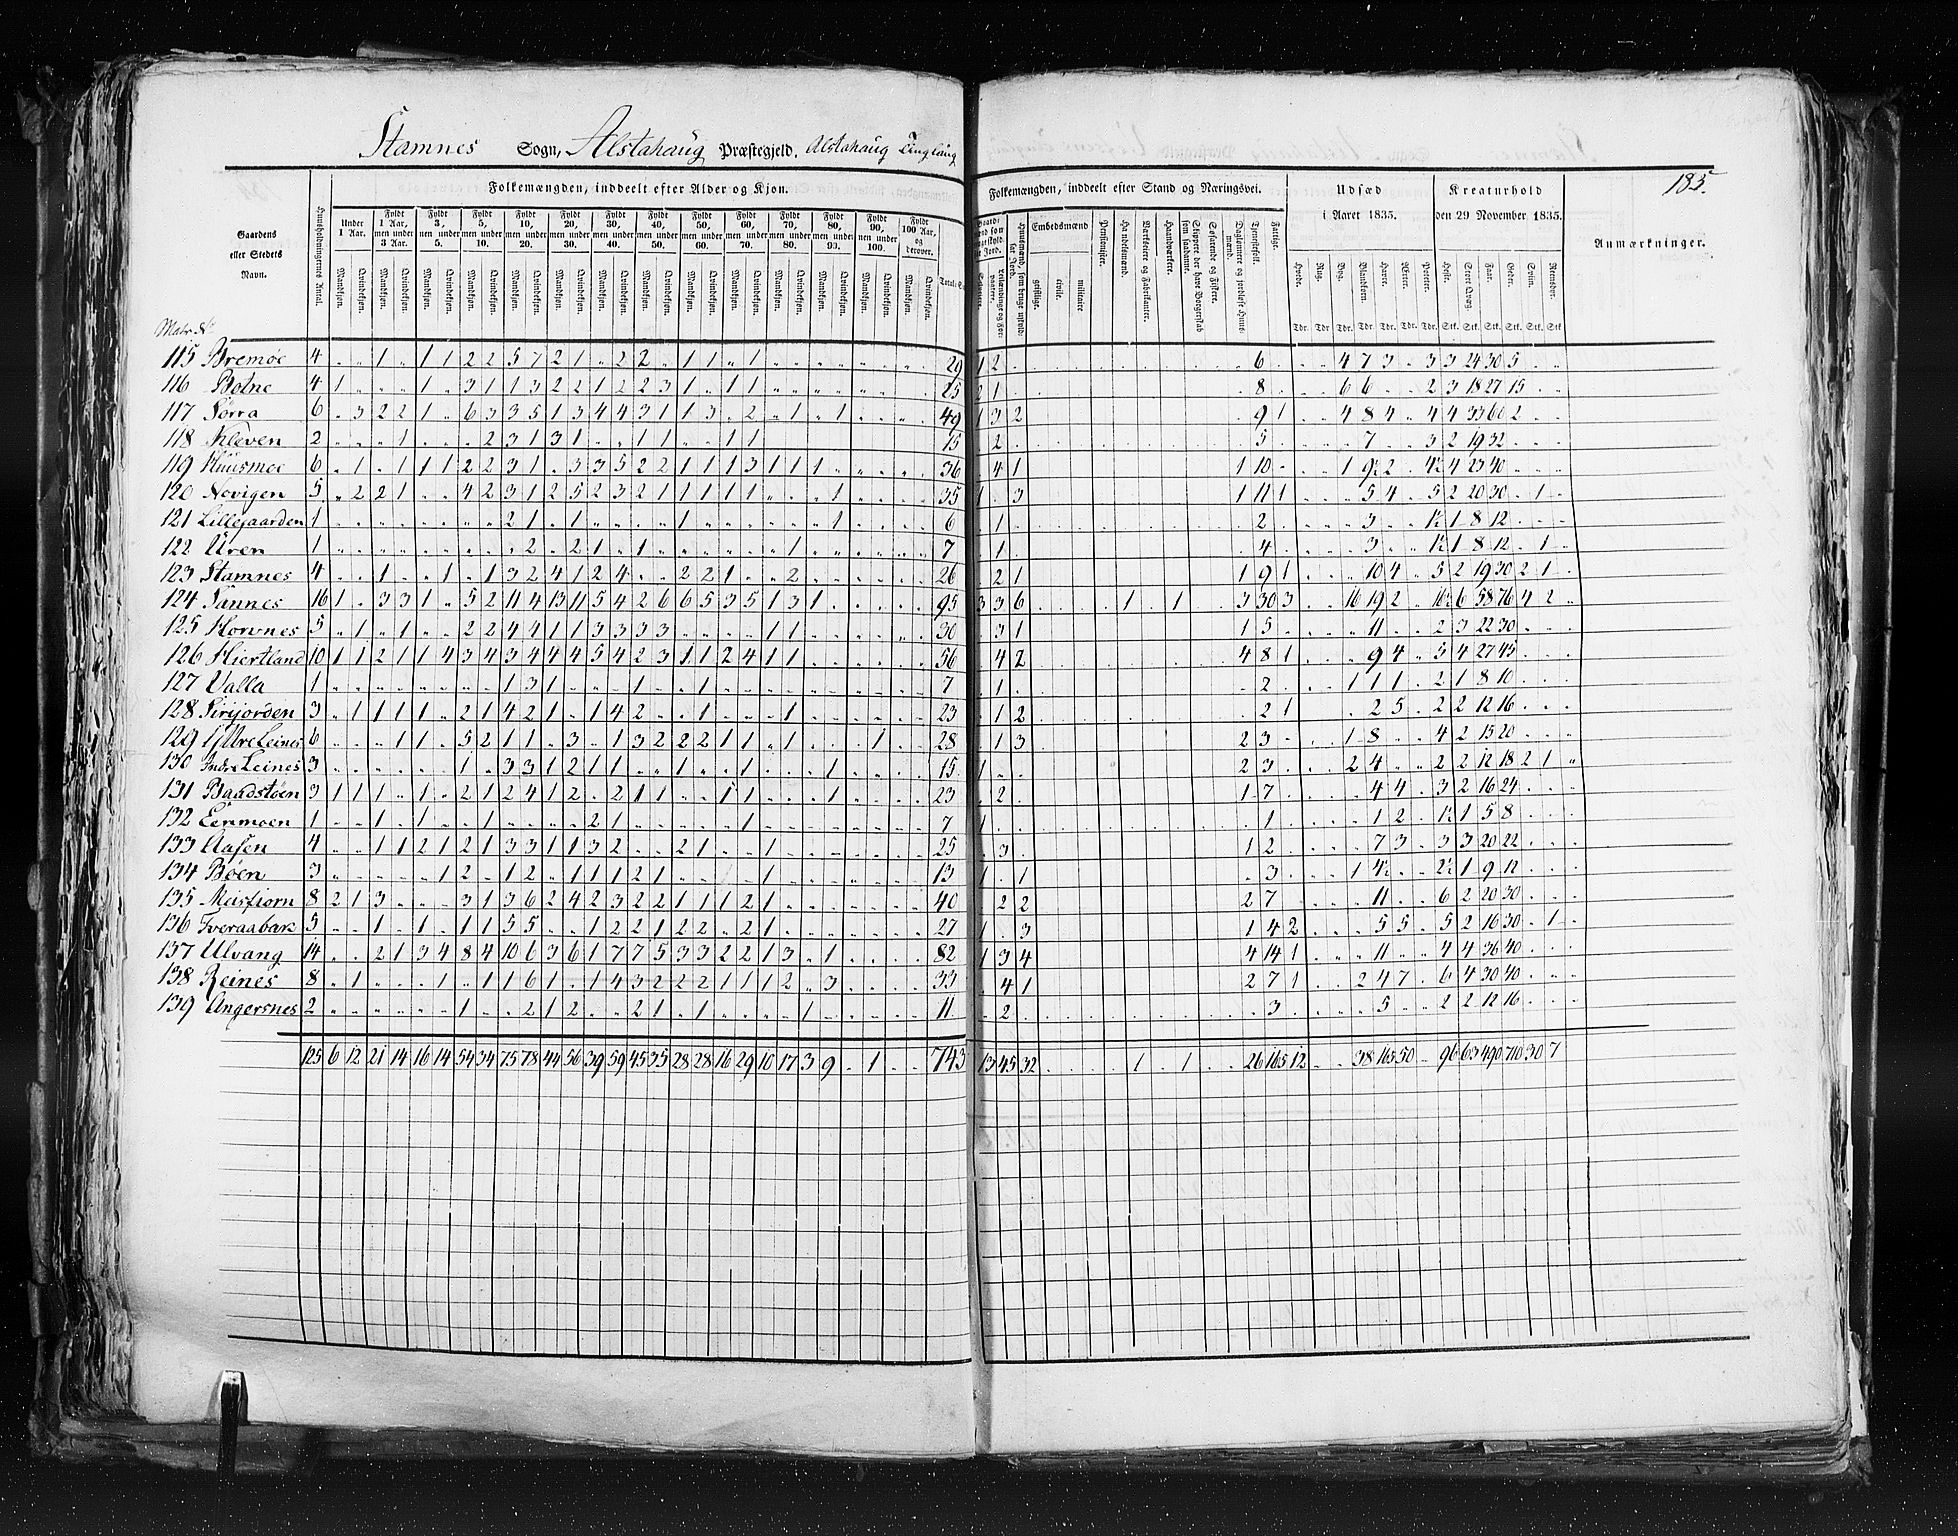 Stamnes Sogn, Alstahaug Præstegjeld. Alstahaug Tinglaug
185.
Folkemængden, inddeelt efter Alder og Kjøn.
Folkemængden, inddeelt efter Stand og Næringsvei.
Udsæd i Aaret 1835.
Kreaturhold den 29 November 1835.
Anmærkninger.
Gaardens eller Stedets Navn.
Huusholdningernes Antal.
Under 1 Aar.
Fyldt 1 Aar, men under 3 Aar.
Fyldt 3, men under 5.
Fyldt 5, men under 10.
Fyldt 10, men under 20.
Fyldt 20, men under 30.
Fyldt 30, men under 40.
Fyldt 40, men under 50.
Fyldt 50, men under 60.
Fyldt 60, men under 70.
Fyldt 70, men under 80.
Fyldt 80, men under 90.
Fyldt 90, men under 100.
Fyldt 100 Aar, og derover.
Mandkjøn. Qvindekjøn.
Embedsmænd geistlige. civile. militaire
Pensionister.
Handelsmænd.
Værkseiere og Fabrikanter.
Haandværkere.
Skippere der have Borgerskab som saadanne.
Søfarende og Fiskere.
Daglønnere og jordløse Huusmænd.
Tjenestefolk.
Fattige.
Hvede. Rug. Byg. Blandkorn. Havre. Ærter. Poteter.
Heste. Stort Qvæg. Faar. Geder. Sviin. Rensdyr.
Tdr. Tdr Tdr. Tdr. Tdr. Tdr. Tdr. Stk. Stk. Stk. Stk. Stk. Stk
Matr. №
115 Bremøe 4 1 1 1 2 2 5 7 2 1 2 2 1 1 1 29 1 2 6 4 7 3 3 3 24 30 5
116 Botne 4 1 1 3 1 1 3 2 2 1 2 2 3 1 1 1 25 2 1 8 6 6 2 3 18 27 15
117 Sørra 6 3 2 2 1 6 3 3 5 1 3 4 4 3 1 1 3 2 1 1 49 1 3 2 9 1 4 8 4 4 4 33 60 2
118 Kleven 2 1 2 3 1 3 1 1 1 1 1 15 2 5 7 3 2 19 32
119 Huusmoe 6 1 1 1 1 2 2 3 1 3 3 5 2 2 1 1 1 3 1 1 1 36 4 1 1 10 1 9½ 2 4½ 4 23 40
120 Novigen 5 2 2 1 4 2 3 1 2 5 2 3 2 1 1 1 1 1 1 35 1 3 1 11 1 5 4 5 2 20 30 1
121 Lillegaarden 1 2 1 1 1 1 6 1 2 3 1½ 1 8 12
122 Uren 1 2 2 1 1 1 7 1 4 3 1½ 1 8 12 1
123 Stamnes 4 1 1 1 3 2 4 1 2 4 2 2 1 2 26 2 1 1 9 1 10 4 5 2 19 30 2 1
124 Sannes 16 1 3 3 1 5 2 11 4 13 11 5 4 2 6 6 5 3 5 1 3 1 95 3 3 6 1 1 3 30 3 16 19 2 16½ 6 58 76 4 2
125 Hornnes 5 1 1 2 2 4 4 1 1 3 3 3 3 1 1 30 3 1 1 5 11 2 3 22 30
126 Hiertland 10 1 1 2 1 1 4 3 4 3 4 4 4 5 4 2 3 1 1 2 4 1 1 56 4 2 4 8 1 9 4 5 4 27 45
127 Valla 1 1 3 1 1 1 7 1 2 1 1 1 2 1 8 10
128 Sirijorden 3 1 1 1 1 2 1 4 2 1 1 4 2 1 1 23 1 2 2 1 2 5 2 2 12 16
129 Yttre Leines 6 1 1 5 2 1 1 3 1 3 2 2 2 1 1 1 1 28 1 3 2 3 1 8 4 2 15 20
130 Indre Leines 3 1 3 3 1 2 1 1 1 1 1 15 1 2 3 2 4 2 2 12 18 2 1
131 Baadstøen 3 1 1 1 1 2 1 2 4 1 2 2 1 1 1 1 1 23 2 1 7 4 4 3 2 16 24
132 Eenmoen 1 1 1 1 2 1 1 7 1 1 1 2 1½ 1 5 8
133 Aasen 4 1 1 2 1 2 1 3 3 1 1 3 2 2 1 1 25 3 1 2 7 3 3 3 20 22
134 Bøen 3 1 2 1 2 1 1 1 2 1 1 13 1 1 3 1 4½ 2½ 1 9 12
135 Meisfiorn 8 2 1 3 3 1 3 6 2 4 2 3 2 2 1 1 1 2 1 40 2 2 2 7 11 6 2 20 30
136 Tveraabak 5 1 1 1 1 5 5 1 2 2 1 2 2 2 1 27 1 3 1 4 2 5 5 5 2 16 30 1
137 Ulvang 14 2 1 3 4 8 4 10 6 3 6 1 7 7 5 3 3 2 2 1 3 1 82 1 3 4 4 14 1 11 4 4 36 40
138 Reines 8 1 1 1 1 6 1 1 4 3 2 2 2 1 1 1 2 3 33 4 1 2 7 1 2 4 7 6 4 30 40
139 Angersnes 2 1 2 1 2 2 1 1 1 11 2 3 5 2 2 12 16
125 6 12 21 14 16 14 54 34 75 78 44 56 39 59 45 35 28 28 16 29 10 17 3 9 1 743 13 45 32 1 1 26 165 12 38 165 50 96 63 490 710 30 7